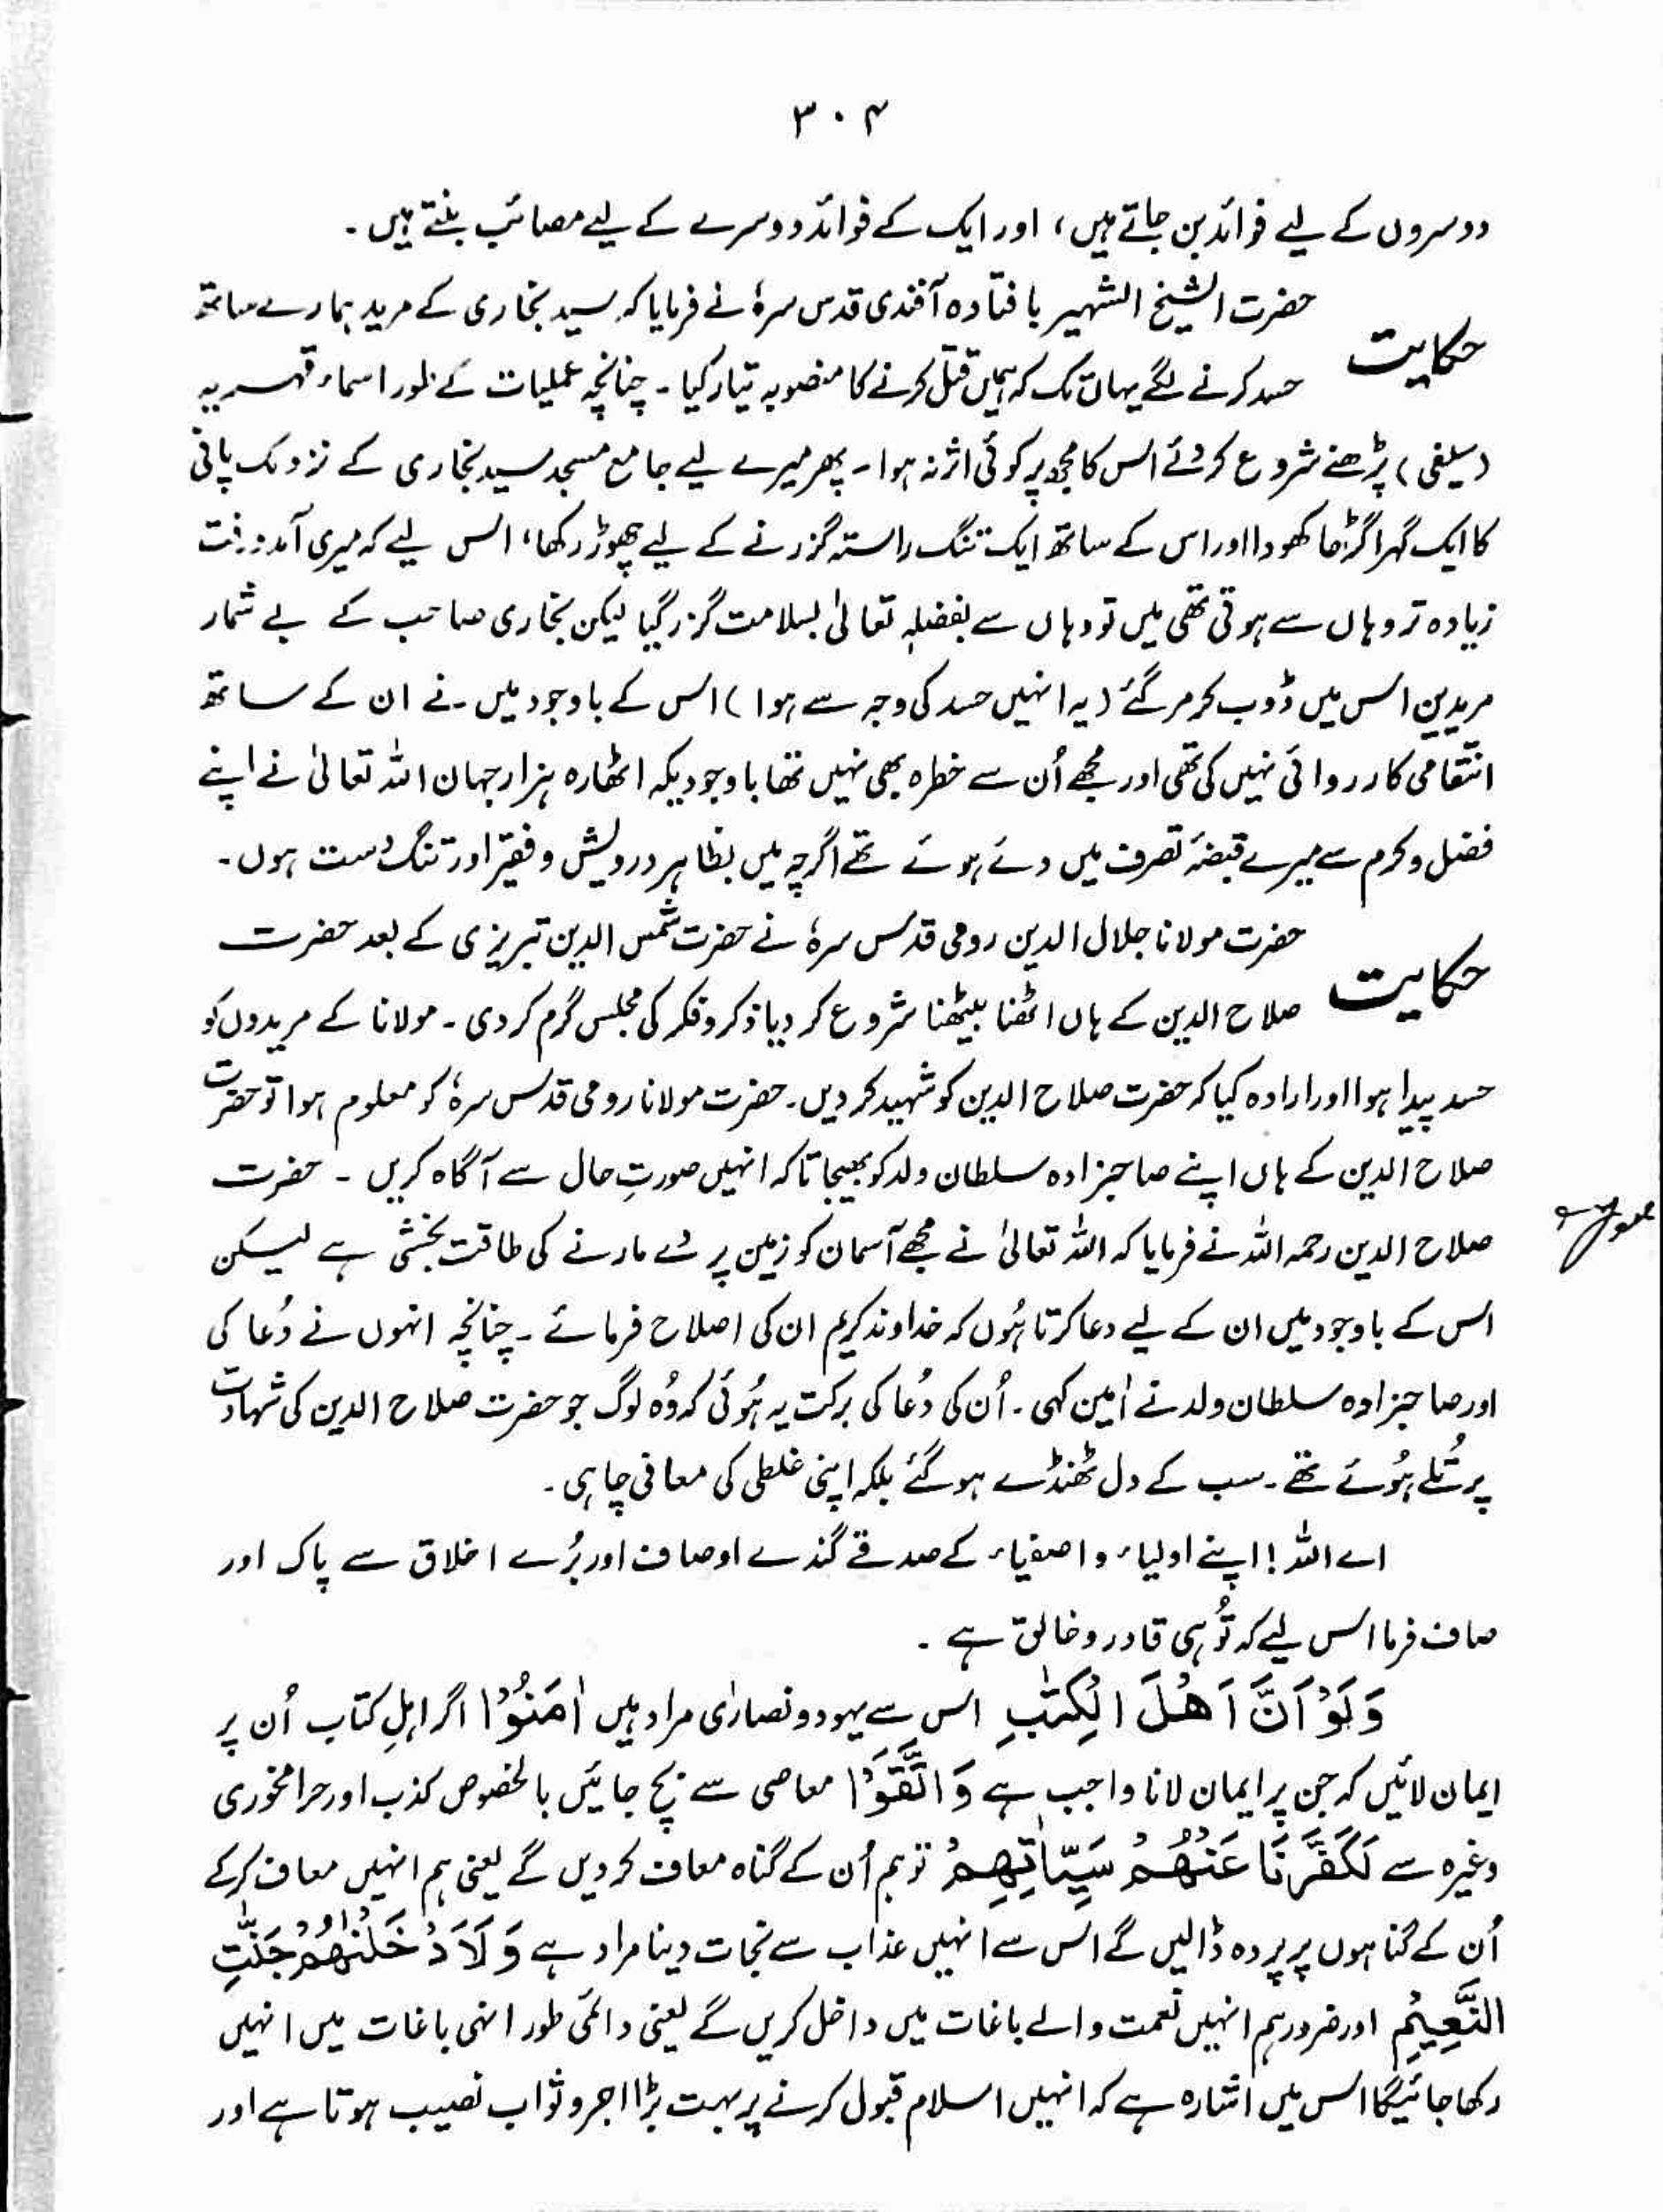 ۳۰۴
دوسروں کے لیے فوائد بن جاتے ہیں، اور ایک کے فوائد دوسرے کے لیے مصائب بنتے ہیں۔
حکایت
حضرت الشیخ الشہیر بافتادہ آفندی قدس سرہٗ نے فرمایا کہ سید بخاری کے مرید ہمارے ساتھ
حسد کرنے لگے یہاں تک کہ ہمیں قتل کرنے کا منصوبہ تیار کیا۔ چنانچہ عملیات کے طور اسماء قہریہ
(سیفی) پڑھنے شروع کردئے اس کا مجھ پر کوئی اثر نہ ہوا۔ پھر میرے لیے جامع مسجد سید بخاری کے نزدیک پانی
کا ایک گہرا گڑھا کھودا اور اس کے ساتھ ایک تنگ راستہ گزرنے کے لیے چھوڑ رکھا، اس لیے کہ میری آمدورفت
زیادہ تر وہاں سے ہوتی تھی میں تو وہاں سے بفضلہٖ تعالیٰ بسلامت گزر گیا لیکن بخاری صاحب کے بے شمار
مریدین اس میں ڈوب کر مر گئے (یہ انہیں حسد کی وجہ سے ہوا) اس کے باوجود میں نے ان کے ساتھ
انتقامی کارروائی نہیں کی تھی اور مجھے اُن سے خطرہ بھی نہیں تھا باوجودیکہ اٹھارہ ہزار جہان اللہ تعالیٰ نے اپنے
فضل وکرم سے میرے قبضۂ تصرف میں دئے ہوئے تھے اگرچہ میں بظاہر درویش و فقیر اور تنگ دست ہوں۔
حکایت
حضرت مولانا جلال الدین رومی قدس سرہٗ نے حضرت شمس الدین تبریزی کے بعد حضرت
صلاح الدین کے ہاں اٹھنا بیٹھنا شروع کر دیا ذکر و فکر کی مجلس گرم کر دی۔ مولانا کے مریدوں کو
حسد پیدا ہوا اور ارادہ کیا کہ حضرت صلاح الدین کو شہید کر دیں۔ حضرت مولانا رومی قدس سرہٗ کو معلوم ہوا تو حضرت
صلاح الدین کے ہاں اپنے صاحبزادہ سلطان ولد کو بھیجا تاکہ انہیں صورتِ حال سے آگاہ کریں۔ حضرت
صلاح الدین رحمہ اللہ نے فرمایا کہ اللہ تعالیٰ نے مجھے آسمان کو زمین پر دے مارنے کی طاقت بخشی ہے لیکن
اس کے باوجود میں ان کے لیے دعا کرتا ہُوں کہ خداوند کریم ان کی اصلاح فرمائے۔ چنانچہ انہوں نے دُعا کی
اور صاحبزادہ سلطان ولد نے اٰمین کہی۔ اُن کی دُعا کی برکت یہ ہُوئی کہ وُہ لوگ جو حضرت صلاح الدین کی شہادت
پر تُلے ہُوئے تھے۔ سب کے دل ٹھنڈے ہو گئے بلکہ اپنی غلطی کی معافی چاہی۔
اے اللہ! اپنے اولیاء و اصفیاء کے صدقے گندے اوصاف اور بُرے اخلاق سے پاک اور
صاف فرما اس لیے کہ تُو ہی قادر و خالق ہے۔
وَلَوْ اَنَّ اَهْلَ الْكِتٰبِ اس سے یہود و نصارٰی مراد ہیں اٰمَنُوْا اگر اہلِ کتاب اُن پر
ایمان لائیں کہ جن پر ایمان لانا واجب ہے وَاتَّقَوْا معاصی سے بچ جائیں بالخصوص کذب اور حرامخوری
وغیرہ سے لَكَفَّرْنَا عَنْهُمْ سَيِّاٰتِهِمْ تو ہم اُن کے گناہ معاف کر دیں گے یعنی ہم انہیں معاف کرکے
اُن کے گناہوں پر پردہ ڈالیں گے اس سے انہیں عذاب سے نجات دینا مراد ہے وَلَاَدْخَلْنٰهُمْ جَنّٰتِ
النَّعِيْمِ اور ضرور ہم انہیں نعمت والے باغات میں داخل کریں گے یعنی دائمی طور انہی باغات میں انہیں
رکھا جائیگا اس میں اشارہ ہے کہ انہیں اسلام قبول کرنے پر بہت بڑا اجر و ثواب نصیب ہوتا ہے اور